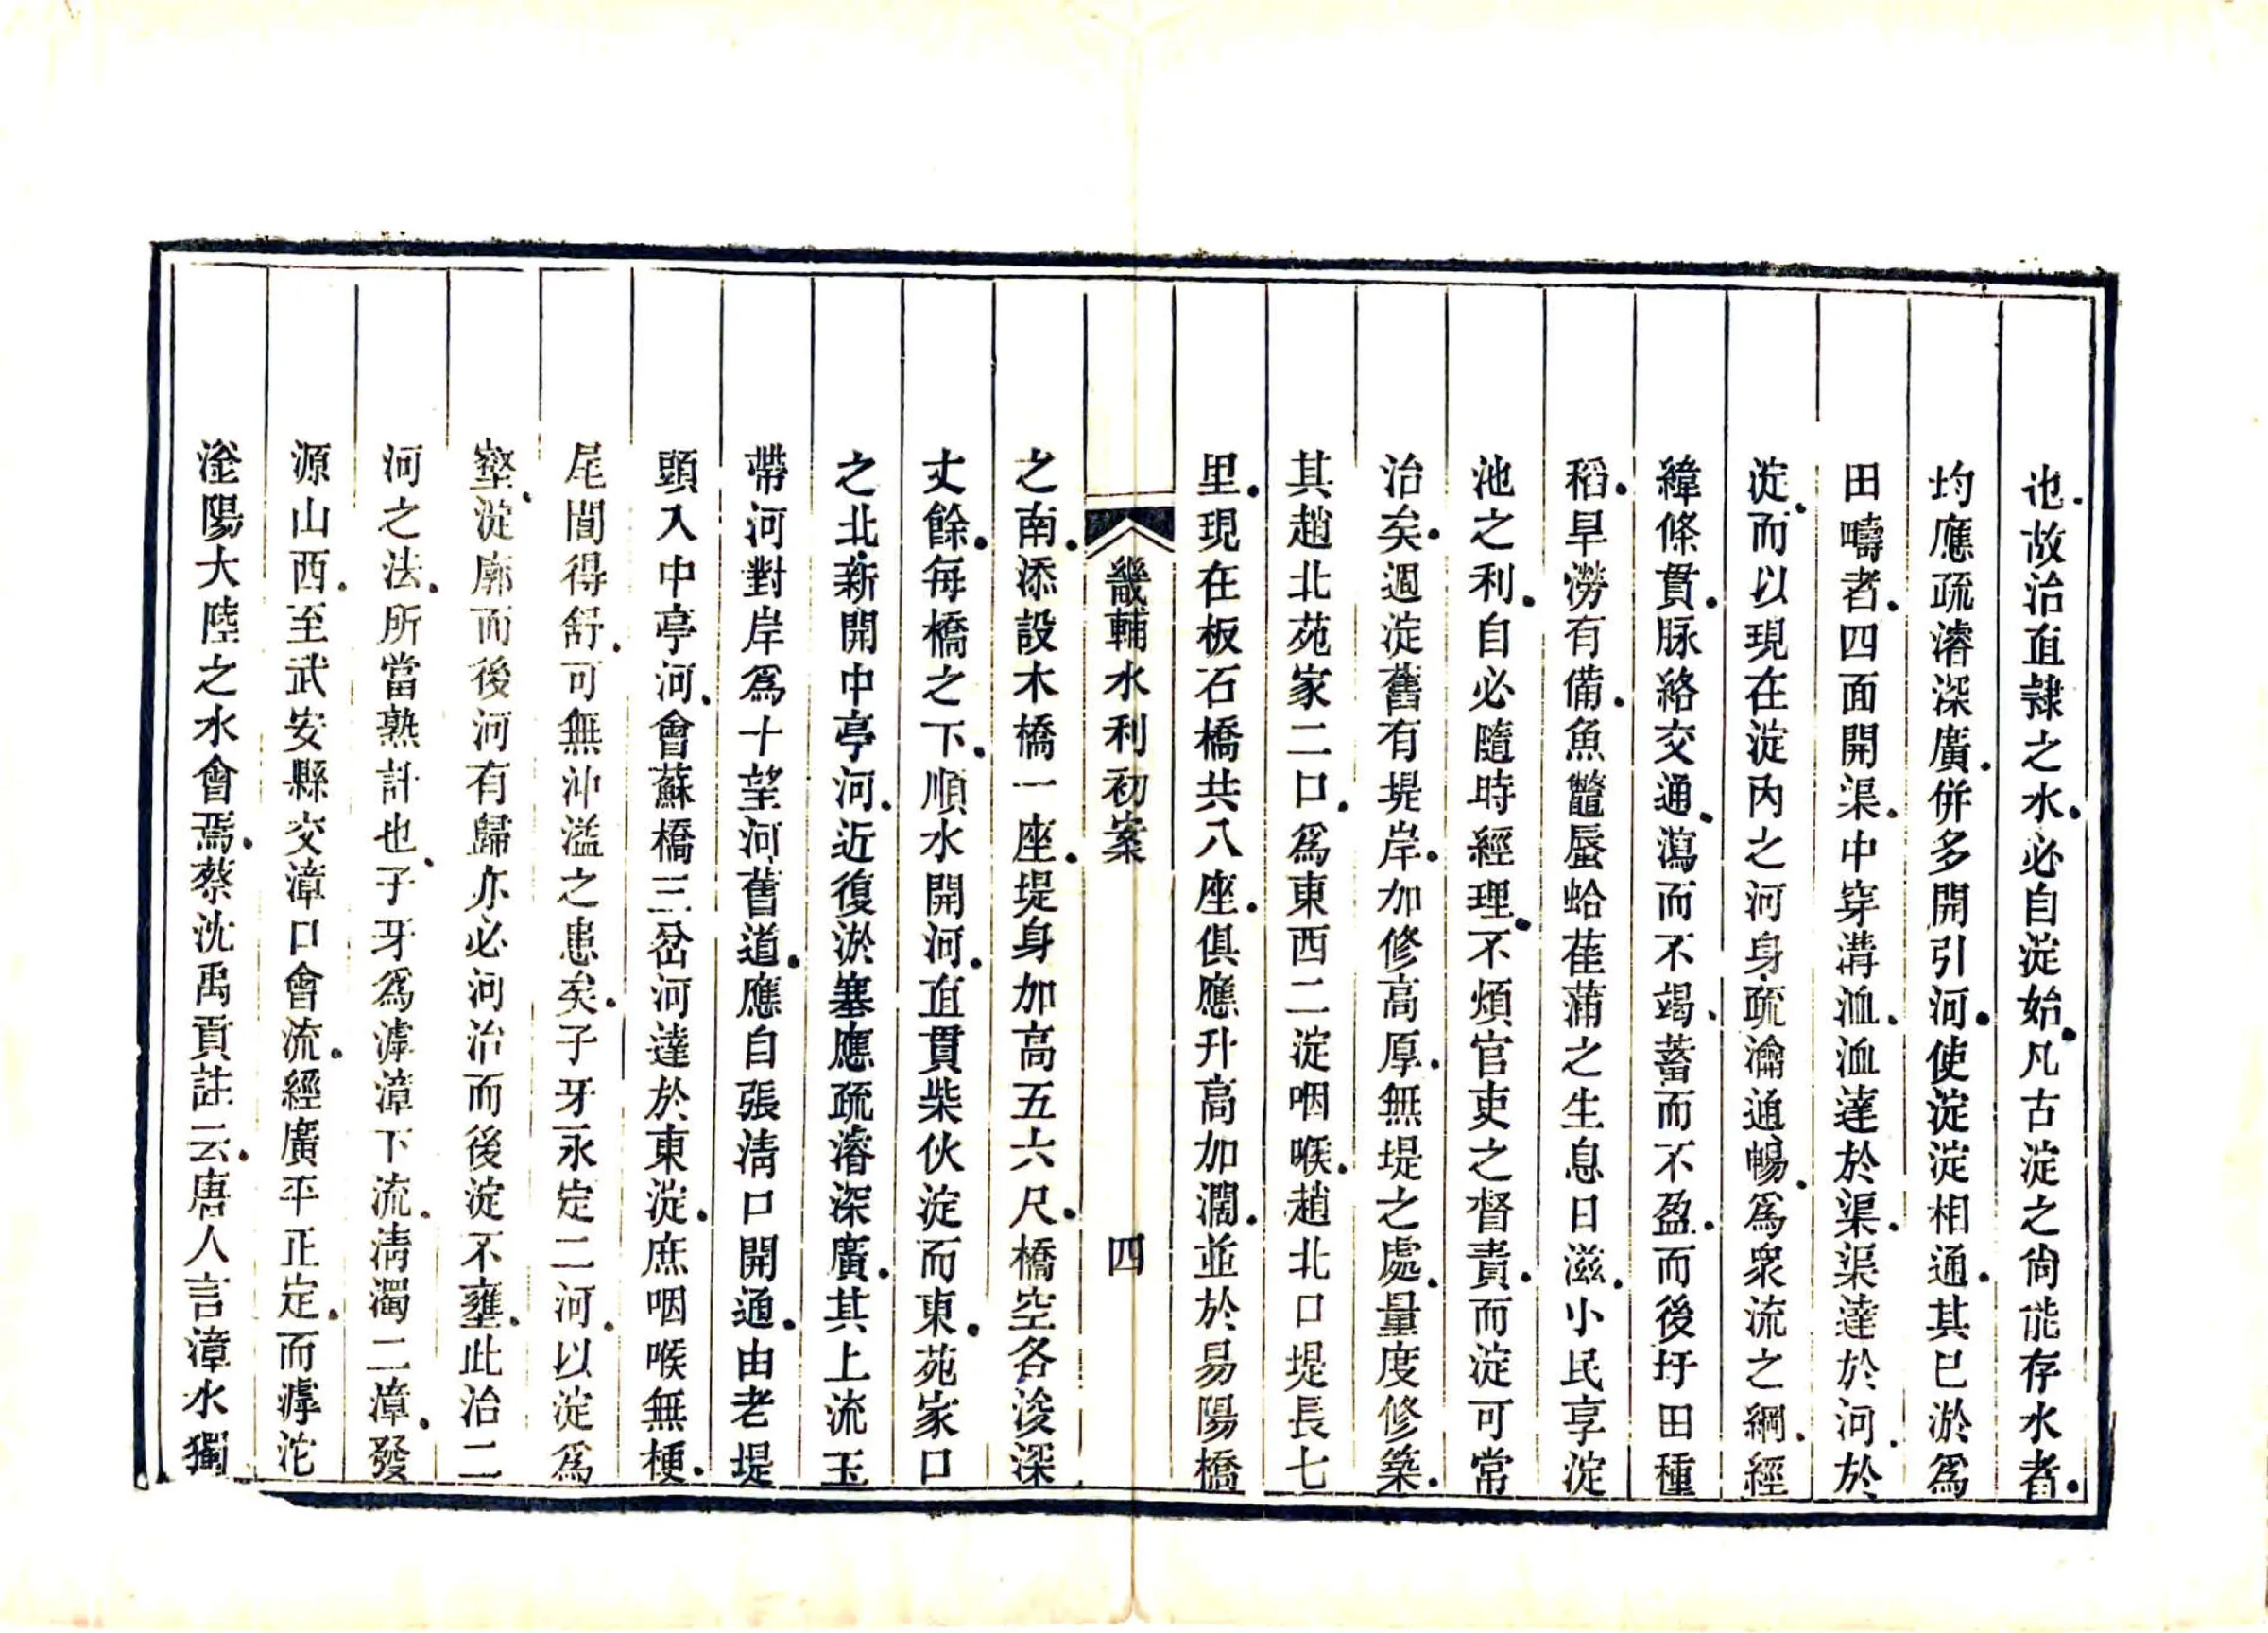 也故治直隸之水必自淀始凡古淀之尙能存水者
均應疏濬深廣併多開引河使淀淀相通其已淤爲
田疇者四面開渠中穿溝洫洫達於渠渠達於河於
淀而以現在淀內之河身疏瀹通暢爲衆流之綱經
緯條貫脉絡交通瀉而不竭蓄而不盈而後圩田種
稻旱澇有備魚鼈蜃蛤萑蒲之生息日滋小民享淀
池之利自必隨時經理不煩官吏之督責而淀可常
治矣週淀舊有堤岸加修高厚無堤之處量度修築
其趙北苑家二口爲東西二淀咽喉趙北口堤長七
里現在板石橋共八座俱應升高加濶並於易陽橋
畿輔水利初案 四
之南添設木橋一座堤身加高五六尺橋空各浚深
丈餘每橋之下順水開河直貫柴伙淀而東苑家口
之北新開中亭河近復淤塞應疏濬深廣其上流玉
帶河對岸爲十望河舊道應自張淸口開通由老堤
頭入中亭河會蘇橋三岔河達於東淀庶咽喉無梗
尾閭得舒可無沖溢之患矣子牙永定二河以淀爲
壑淀廓而後河有歸亦必河治而後淀不壅此治二
河之法所當熟計也子牙爲滹漳下流淸濁二漳發
源山西至武安縣交漳口會流經廣平正定而滹沱
滏陽大陸之水會焉蔡沈禹貢註云唐人言漳水獨